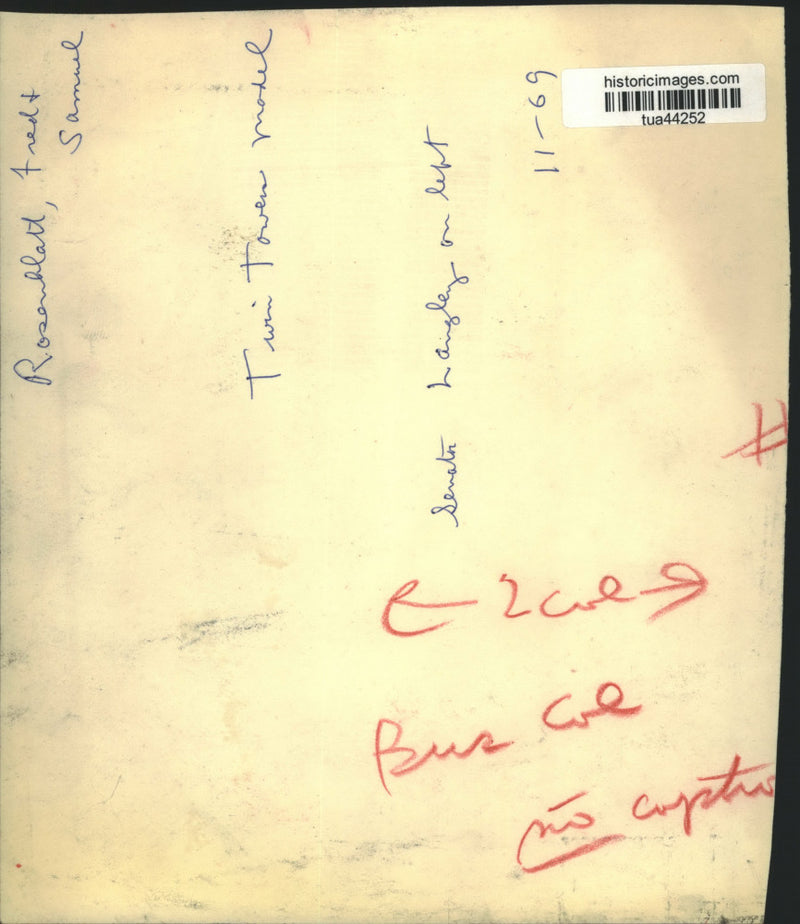 historicimages.com
tua44252
Rosenblatt, Fred +
Samuel
Twin Towers model
Senator Langley on left
11-69
#
← 2 col →
Bus Col
no captio